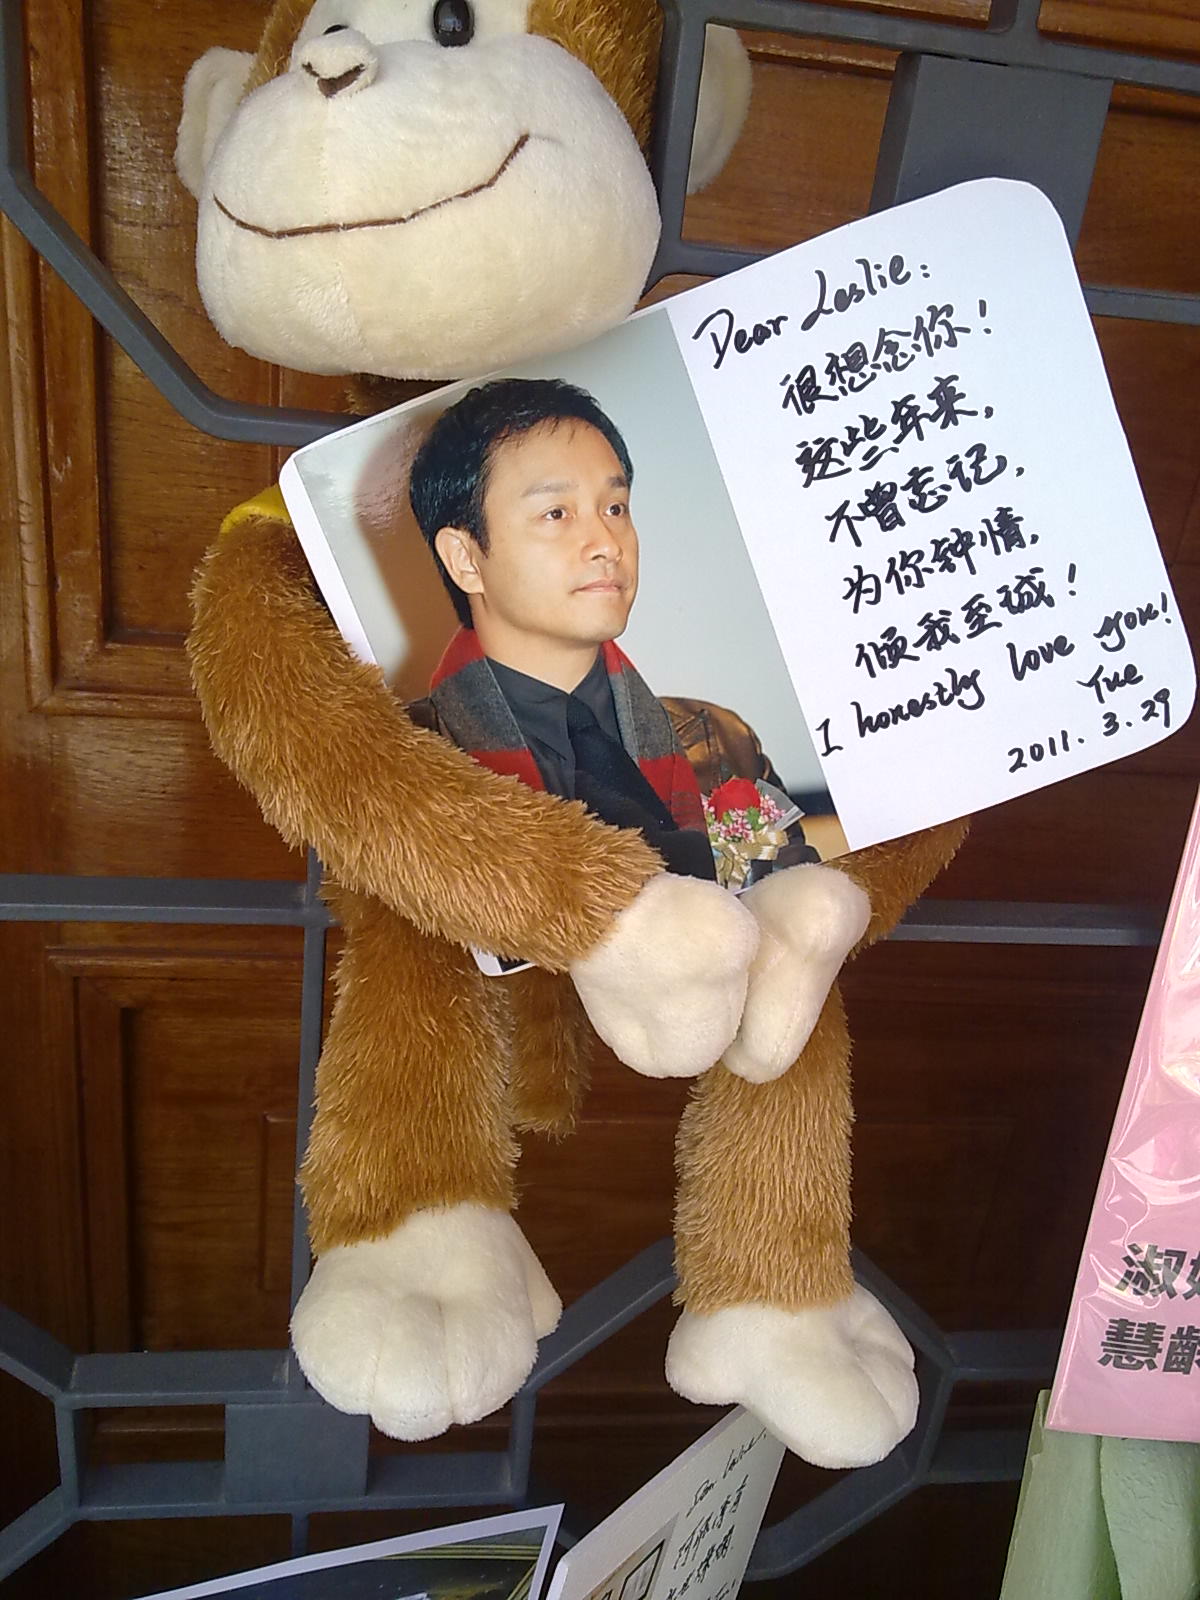 Dear Leslie:
很想念你！
这些年来，
不曾忘记，
为你钟情，
倾我至诚！
I honestly love you!
Yue
2011.3.29
淑
慧齡